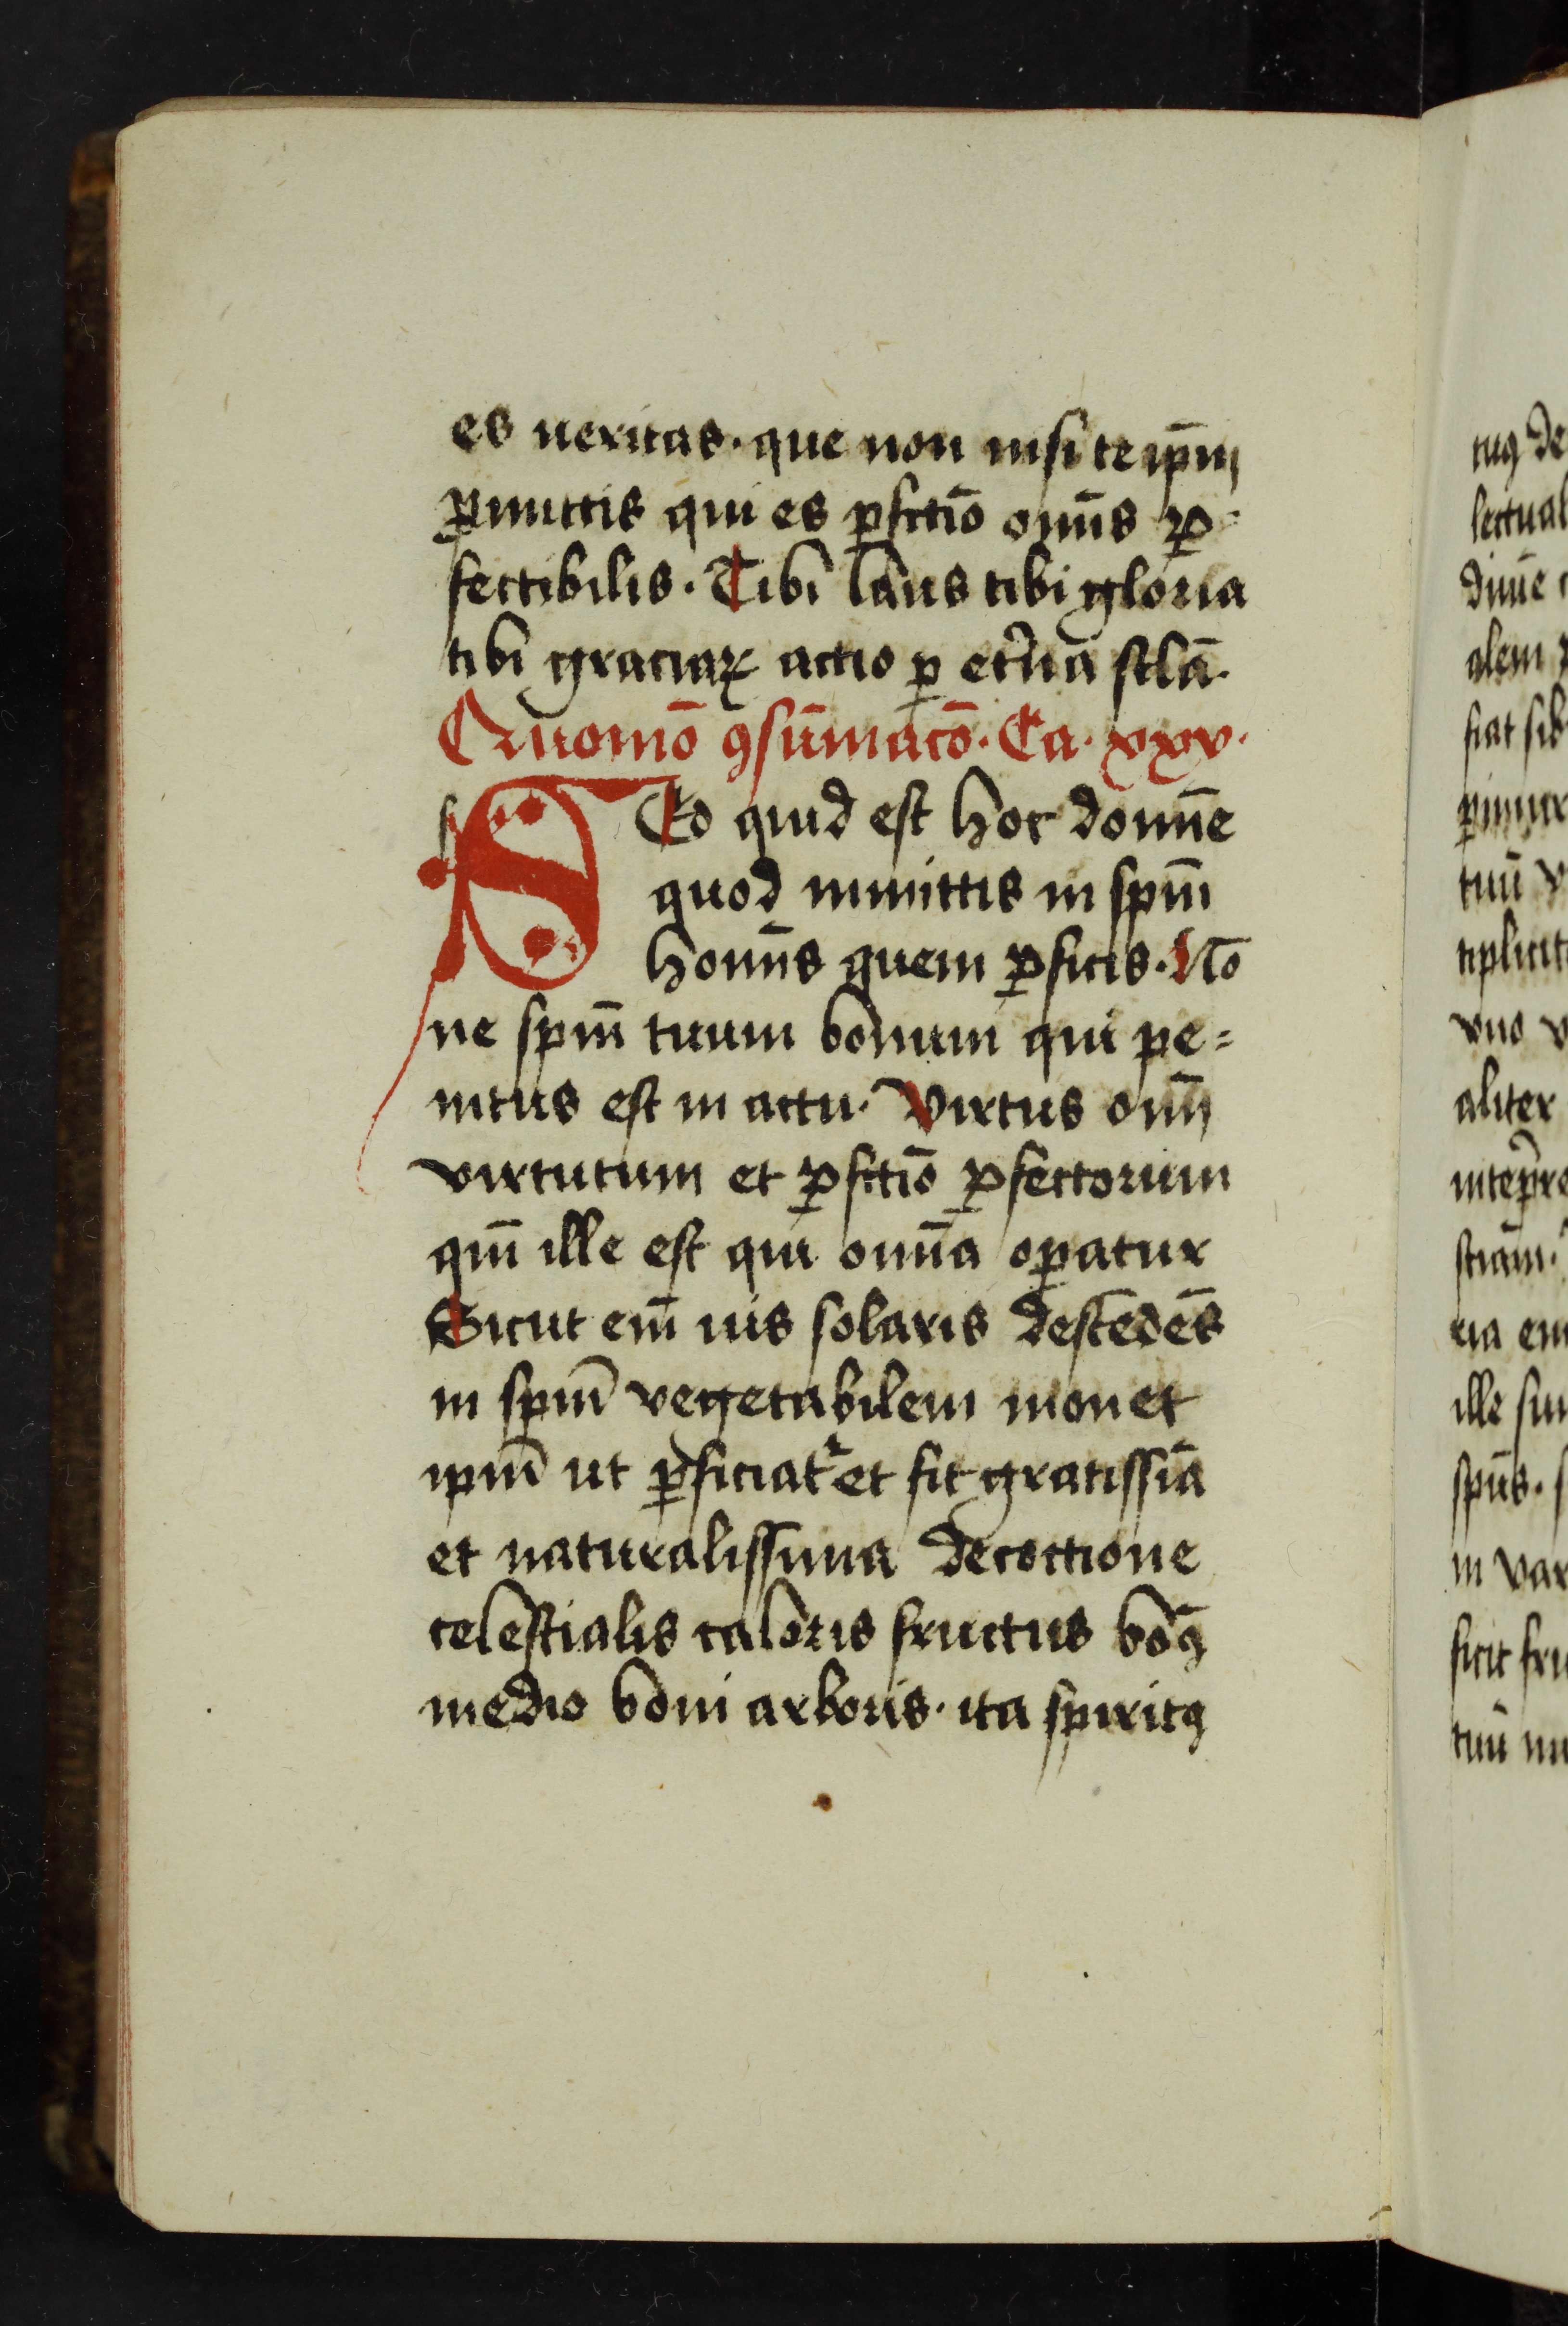 es ueritas. que non nisi te ip̄m
ꝑmittis qui es ꝑfctiō om̄is ꝑ=
fectibilis. Tibi laus tibi gloria
tibi graciaꝝ actio ꝑ et̄na sc̄la.
Quomō ꝯsūmacō. Ca. xxv.
SEd quid est hoc domīe
quod inmittis in sp̄m
homīs quem ꝑficis. Nō
ne sp̄m tuum bonum qui pe=
nitus est in actu. Virtus om̄
virtutum et ꝑfctiō ꝑfectorum
qm̄ ille est qui om̄ia oꝑatur
Sicut em̄ uis solaris descēdēs
in sp̄m vegetabilem mouet
ip̄m ut ꝑficiat᷑ et fit gratissīa
et naturalissima decoctione
celestialis caloris fructus bonꝰ
medio boni arboris. ita spiritꝰ
tuꝰ de
lectual
diuīe
alem
fiat sib
ꝑ
tuū v
tiplicit
vno v
aliter
sciam.
ria eni
ille sui
sp̄us. s
in var
ficit fru
tuū